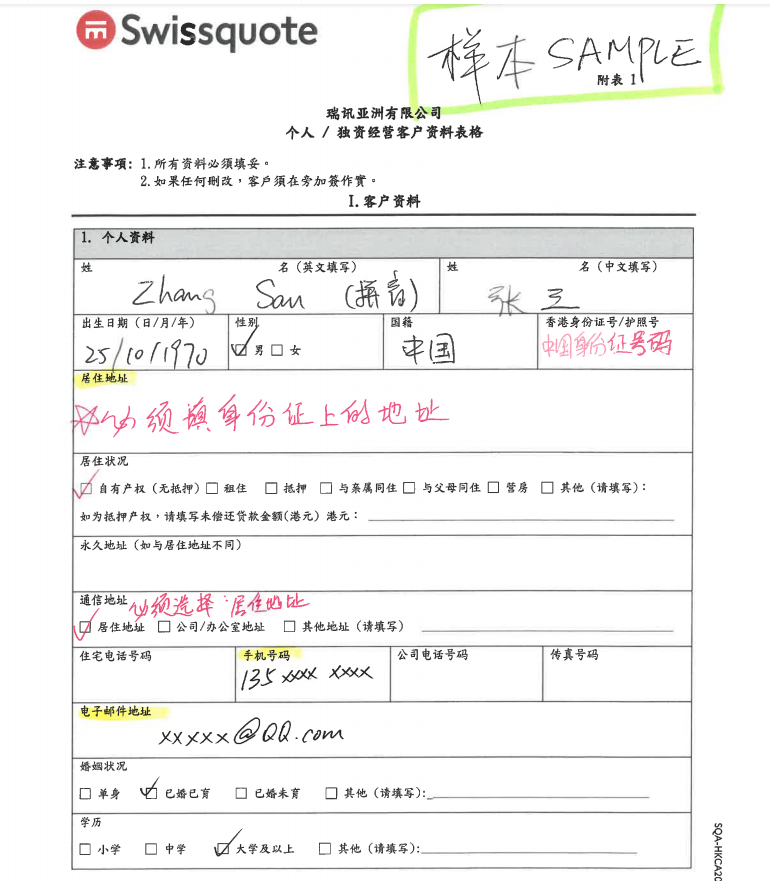 Swissquote
样本 SAMPLE
附表 1
瑞讯亚洲有限公司
个人 / 独资经营客户资料表格
注意事项: 1.所有资料必须填妥。
2.如果任何刪改,客戶須在旁加簽作實。
I.客户资料
1. 个人资料
姓 名(英文填写) 姓 名(中文填写)
Zhang San (拼音) 张 三
出生日期(日/月/年) 性别 国籍 香港身份证号/护照号
25/10/1970 男 女 中国 中国身份证号码
居住地址
必须填身份证上的地址
居住状况
自有产权(无抵押) 租住 抵押 与亲属同住 与父母同住 营房 其他(请填写):
如为抵押产权,请填写未偿还贷款金额(港元)港元:
永久地址(如与居住地址不同)
通信地址 必须选择:居住地址
居住地址 公司/办公室地址 其他地址(请填写)
住宅电话号码 手机号码 公司电话号码 传真号码
135 xxxx xxxx
电子邮件地址
xxxxx@QQ.com
婚姻状况
单身 已婚已育 已婚未育 其他(请填写):
学历
小学 中学 大学及以上 其他(请填写):
SQA-HKCA20